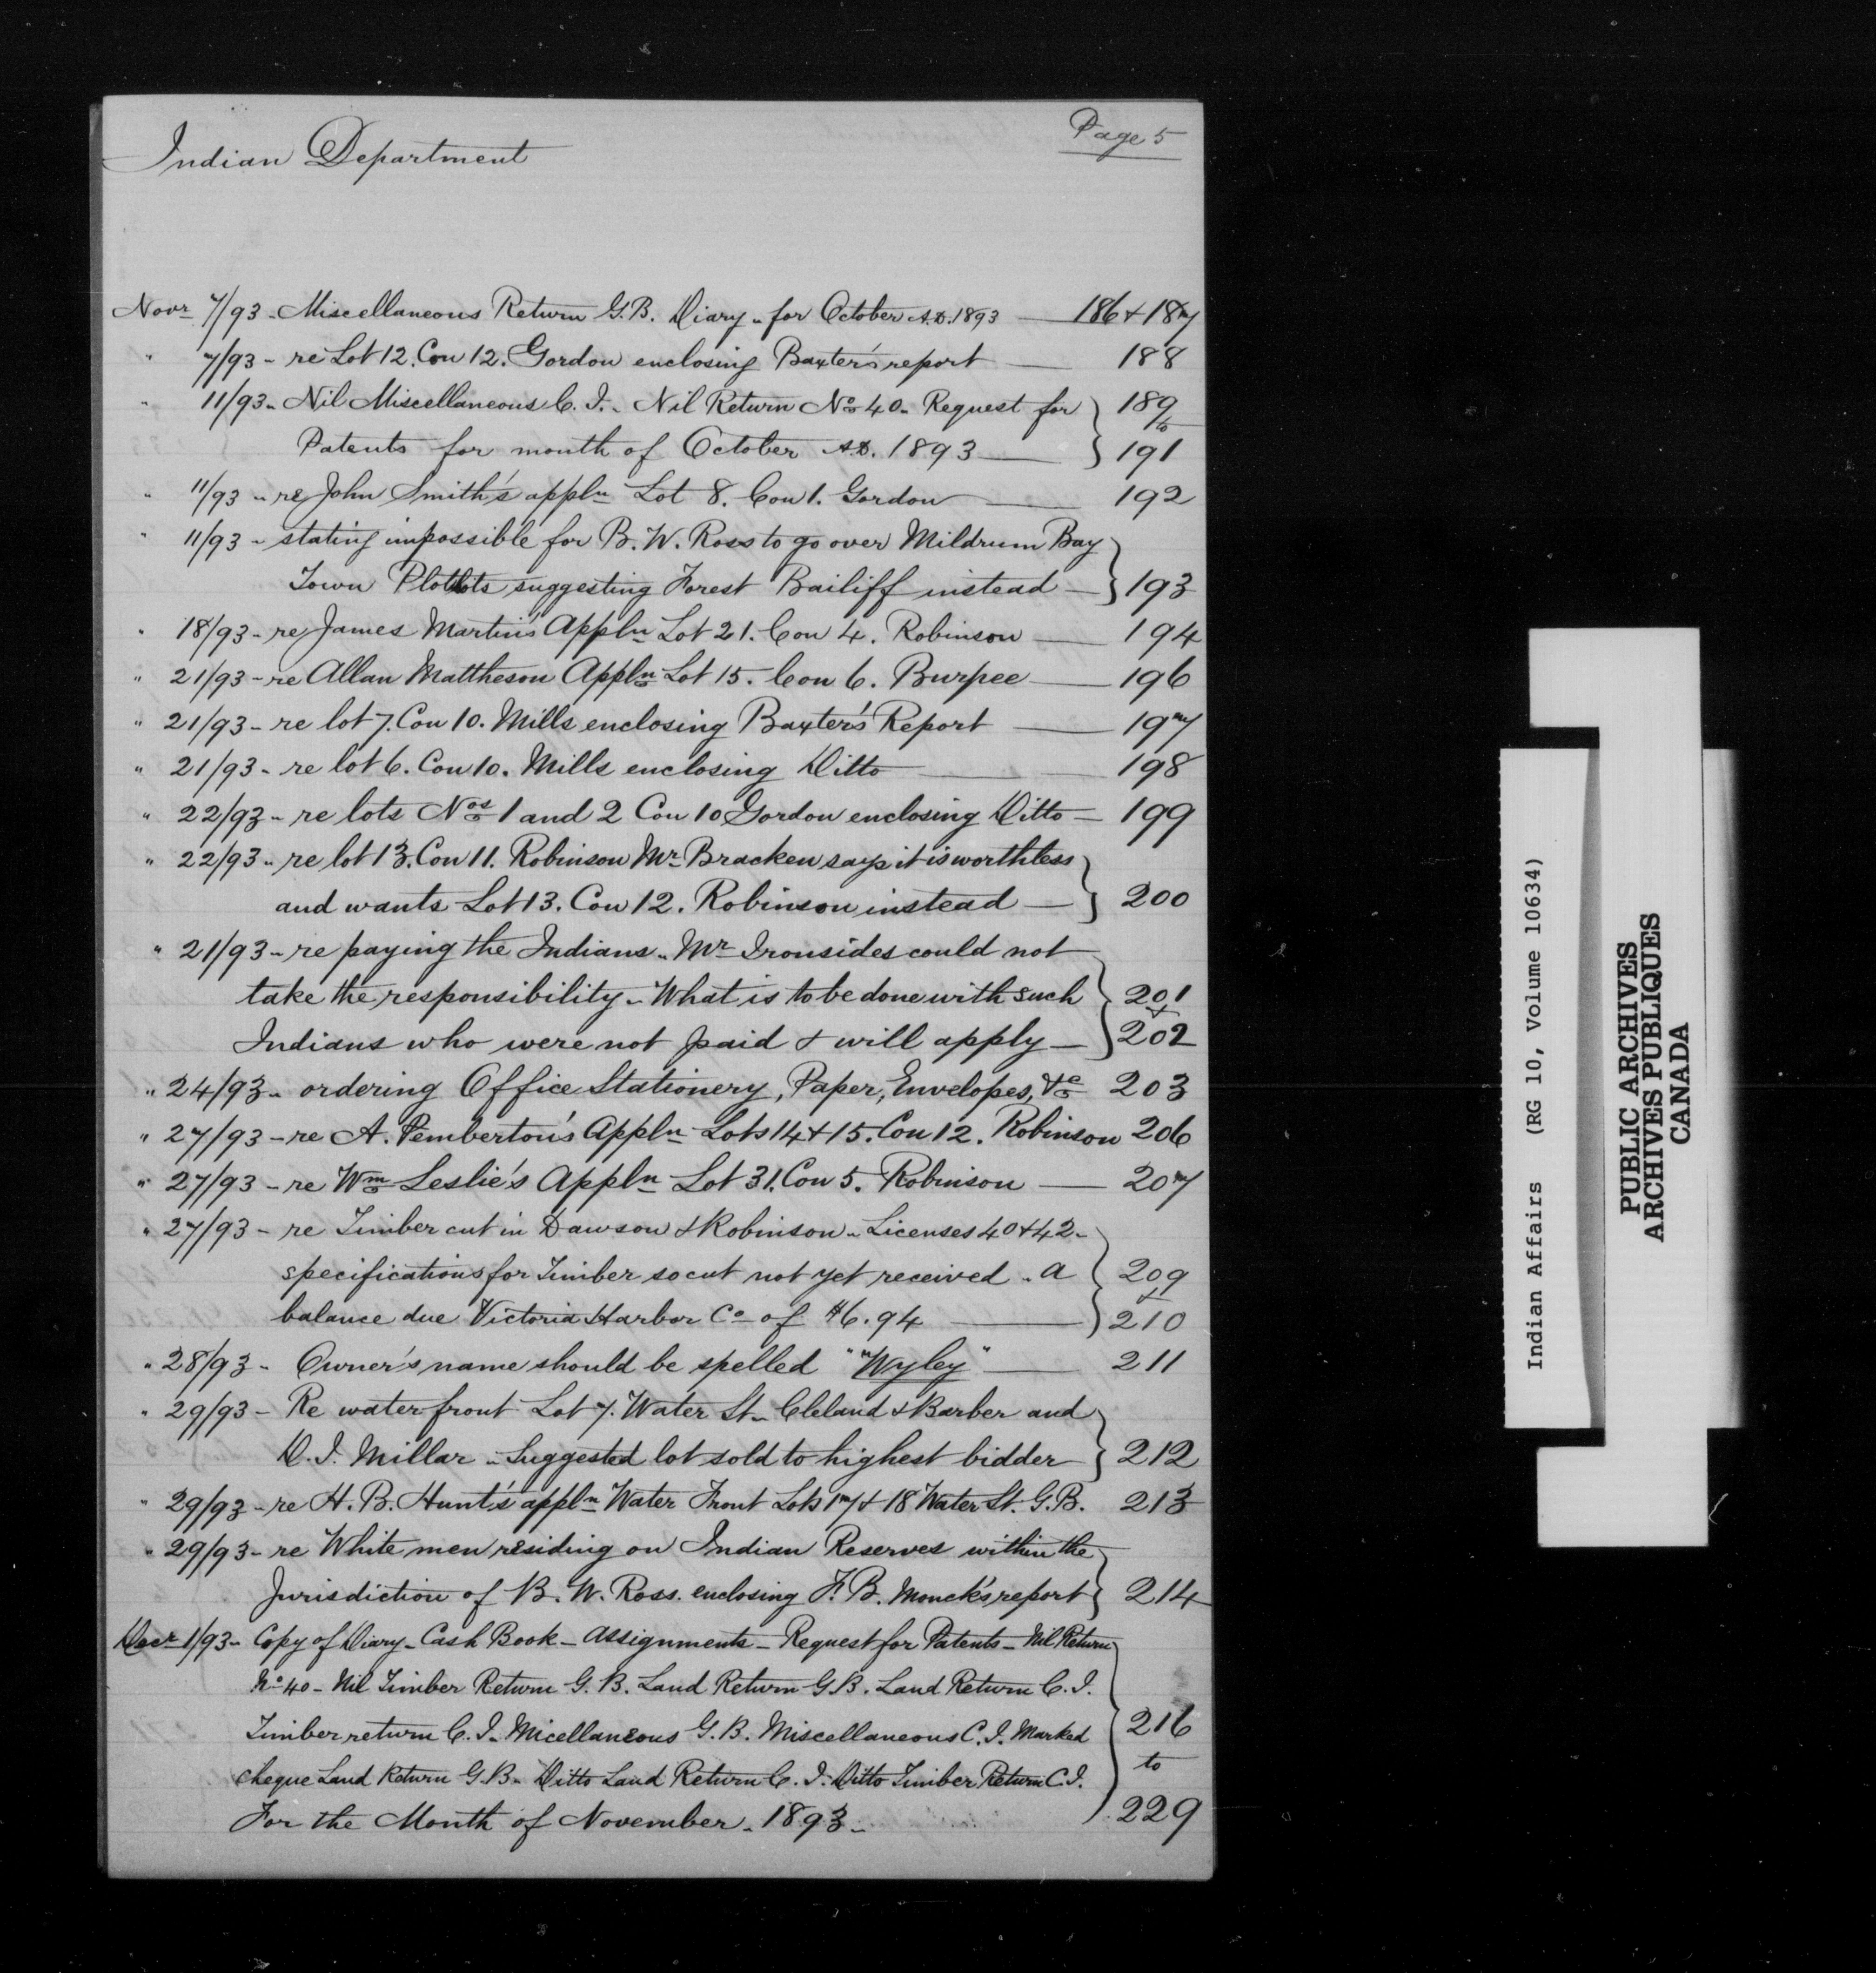 Page 5
Indian Department
Novr 7/93 - Miscellaneous Return G.B. Diary - for October A.D. 1893 — 186 & 187
" 7/93 - re Lot 12. Con 12. Gordon enclosing Baxter's report — 188
" 11/93 - Nil Miscellaneous C.I. - Nil Return No 40 - Request for } 189 to
Patents for month of October A.D. 1893 — } 191
" 11/93 - re John Smith's appln Lot 8. Con 1. Gordon — 192
" 11/93 - stating impossible for B. W. Ross to go over Mildrum Bay }
Town Plot lots suggesting Forest Bailiff instead — } 193
" 18/93 - re James Martin's Appln Lot 21. Con 4. Robinson — 194
" 21/93 - re Allan Mattheson Appln Lot 15. Con 6. Burpee — 196
" 21/93 - re lot 7. Con 10. Mills enclosing Baxter's Report — 197
" 21/93 - re lot 6. Con 10. Mills enclosing Ditto — 198
" 22/93 - re lots Nos 1 and 2 Con 10 Gordon enclosing Ditto — 199
" 22/93 - re lot 13. Con 11. Robinson Mr Bracken says it is worthless }
and wants Lot 13. Con 12. Robinson instead — } 200
" 21/93 - re paying the Indians - Mr Ironsides could not
take the responsibility - What is to be done with such } 201 &
Indians who were not paid & will apply — } 202
" 24/93 - ordering Office Stationery, Paper, Envelopes, &c 203
" 27/93 - re A. Pemberton's Appln Lots 14 & 15. Con 12. Robinson 206
" 27/93 - re Wm Leslie's Appln Lot 31. Con 5. Robinson — 207
" 27/93 - re Timber cut in Dawson & Robinson - Licenses 40 & 42 -
specifications for Timber so cut not yet received - a } 209 &
balance due Victoria Harbor Co of $6.94 — } 210
" 28/93 - Owner's name should be spelled "Wyley" — 211
" 29/93 - Re water front Lot 7. Water St - Cleland & Barber and
D. I. Millar - Suggested lot sold to highest bidder } 212
" 29/93 - re H. B. Hunt's appln Water Front Lots 17 & 18 Water St. G.B. 213
" 29/93 - re White men residing on Indian Reserves within the
Jurisdiction of B. W. Ross. enclosing F. B. Monck's report } 214
Decr 1/93 - Copy of Diary - Cash Book - Assignments - Request for Patents - Nil Return
No 40 - Nil Timber Return G. B. Land Return G B. Land Return C. I.
Timber return C. I. Micellaneous G. B. Miscellaneous C. I. Marked } 216
cheque Land Return G. B. Ditto Land Return C. I. Ditto Timber Return C. I. to
For the Month of November - 1893 - } 229
Indian Affairs (RG 10, Volume 10634)
PUBLIC ARCHIVES
ARCHIVES PUBLIQUES
CANADA